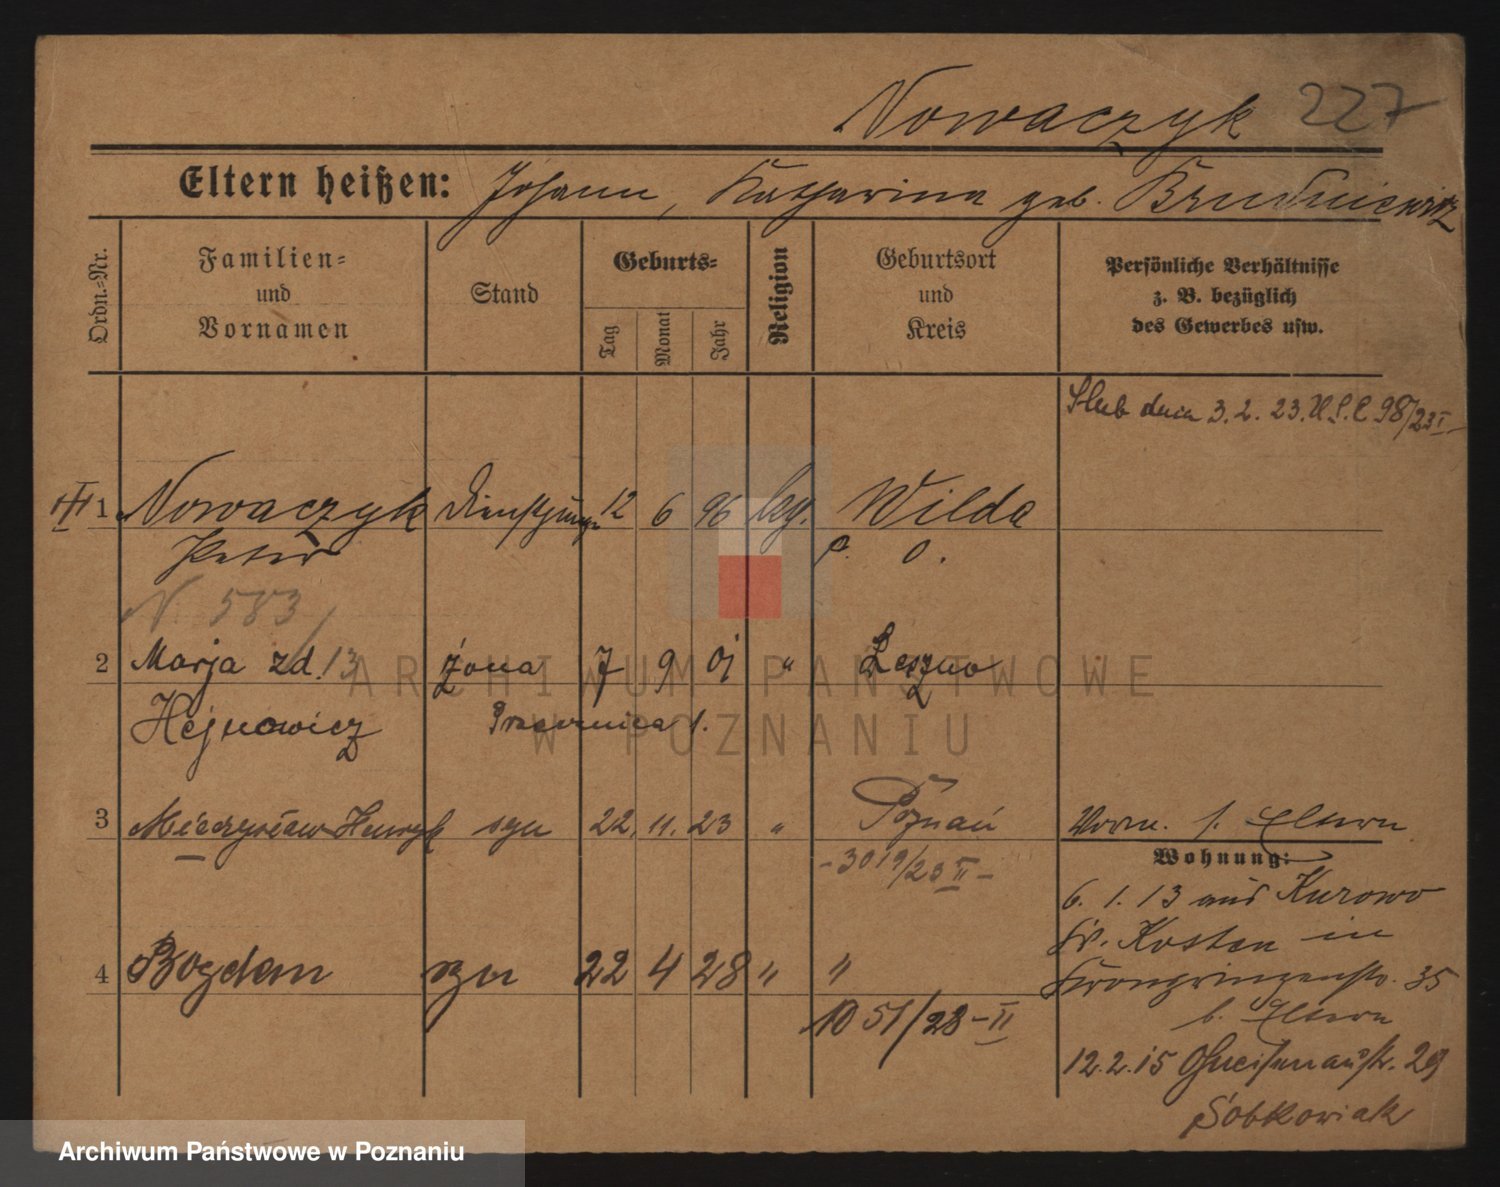 Nowaczyk 227
Eltern heißen: Johann, Katharina geb. Brudniewicz
Ordn.-Nr.
Familien- und Vornamen
Stand
Geburts-
Tag
Monat
Jahr
Religion
Geburtsort und Kreis
Persönliche Verhältnisse z. B. bezüglich des Gewerbes usw.
Ślub dnia 3.2.23. U.S.C 98/23 I
1 Nowaczyk Dienstjunge 12 6 96 kg. Wilda
Peter P. O.
N. 583/13
2 Marja zd. żona 7 9 01 " Leszno
Hejnowicz
3 Mieczysław Henryk syn 22. 11. 23 " Poznań
- 3019/23 II -
Wohnung:
6. 1. 13 aus Kurowo
Kr. Kosten in
4 Bogdan syn 22 4 28 " "
Kronprinzenstr. 35
b. Eltern
1051/28-II
12.2.15 Gneisenaustr. 29
Sobkowiak
ARCHIWUM PAŃSTWOWE
W POZNANIU
Archiwum Państwowe w Poznaniu